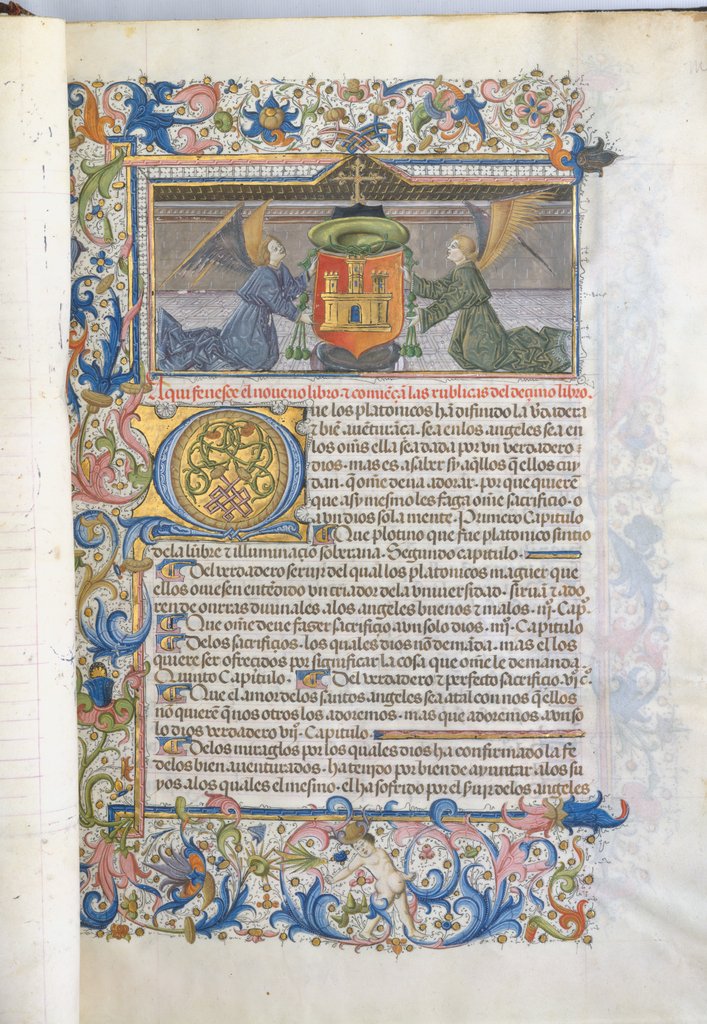 Aqui fenesce el noueno libro ⁊ comiẽçã las rublicas del deçimo libro.
Que los platonicos hã difinido la ṽdadera
⁊ biẽ auẽturãça. sea en los angeles sea en
los om̃s ella sea dada por vn verdadero
dios. mas es asaber sy aq̃llos q̃ ellos cuy
dan. q̃ om̃e deua adorar. por que quierẽ
que asy mesmo les faga om̃e sacrifiçio. o
a vn dios sola mente. Primero Capitulo
Que plotino que fue platonico sintio
dela lũbre ⁊ illuminaçio soberana. Segundo capitulo.
Del verdadero seruir del qual los platonicos maguer que
ellos ouiesen entẽdido vn criador dela vniuersidad. siruiã ⁊ ado
ren de onrras diuinales. alos angeles buenos ⁊ malos. iijͦ. Capͦ.
Que om̃e deue fazer sacrifiçio a vn solo dios. iiijͦ. Capitulo
Delos sacrifiçios. los quales dios nõ demãda. mas el los
quiere ser ofreçidos por significar la cosa que om̃e le demanda.
Quinto Capitulo. Del verdadero ⁊ perfecto sacrifiçio. vjͦ cͦ.
Que el amor delos santos angeles sea atal con nos q̃ ellos
nõ quierẽ q̃ nos otros los adoremos. mas que adoremos a vn so
lo dios verdadero vijͦ. Capitulo.
Delos miraglos por los quales dios ha confirmado la fe
delos bien auenturados. ha tenido por bien de ayuntar alos su
yos. alos quales el mesmo. el ha sofrido por el s̃uir delos angeles